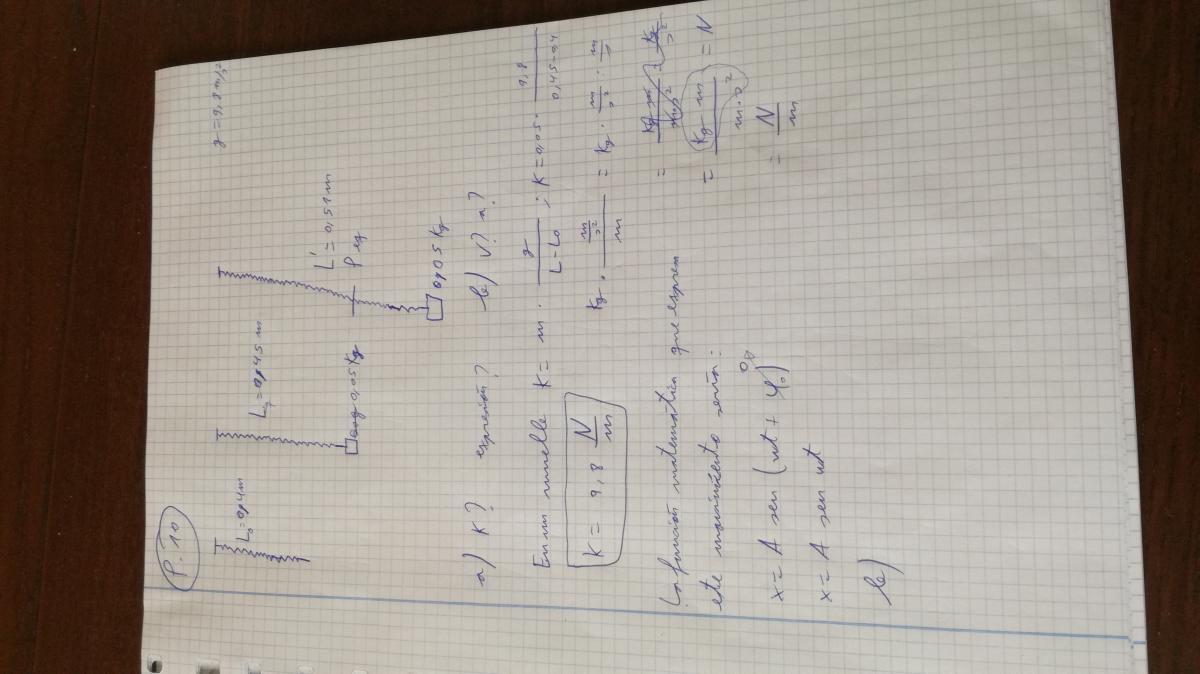 P-10
g = 9,8 m/s²
L₀ = 0,4 m
L = 0,45 m
0,05 Kg
L' = 0,51 m
P eq
0,05 Kg
a) K? expresión? b) v? a?
En un muelle K = m · g / (L - L₀) ; K = 0,05 · 9,8 / (0,45 - 0,4)
K = 9,8 N/m
Kg · (m/s²) / m = Kg · m/s² · m/s
= Kg m / m s² = Kg/s²
= Kg m / m · s² = N
= N/m
La función matemática que expresa
este movimiento sería:
x = A sen (wt + φ₀) 0
x = A sen wt
b)